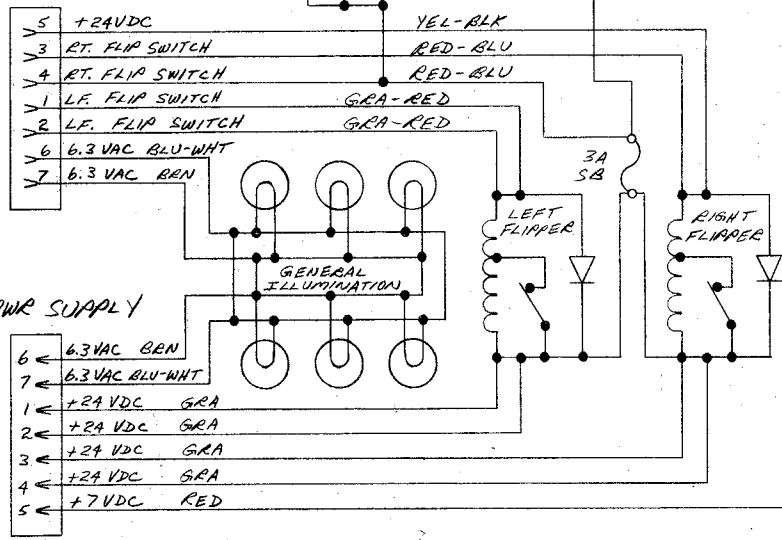 5 +24VDC YEL-BLK
3 RT. FLIP SWITCH RED-BLU
4 RT. FLIP SWITCH RED-BLU
1 LF. FLIP SWITCH GRA-RED
2 LF. FLIP SWITCH GRA-RED
6 6.3 VAC BLU-WHT
7 6.3 VAC BRN
3A
SB
LEFT
FLIPPER
RIGHT
FLIPPER
GENERAL
ILLUMINATION
PWR SUPPLY
6 6.3VAC BRN
7 6.3VAC BLU-WHT
1 +24 VDC GRA
2 +24 VDC GRA
3 +24 VDC GRA
4 +24 VDC GRA
5 +7VDC RED